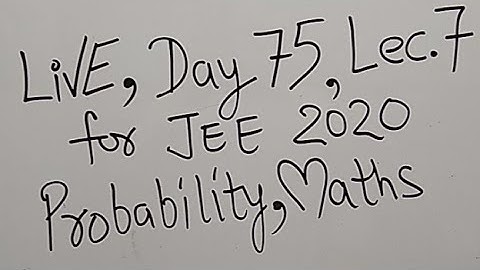 LiVE, Day 75, Lec.7
for JEE 2020
Probability, Maths